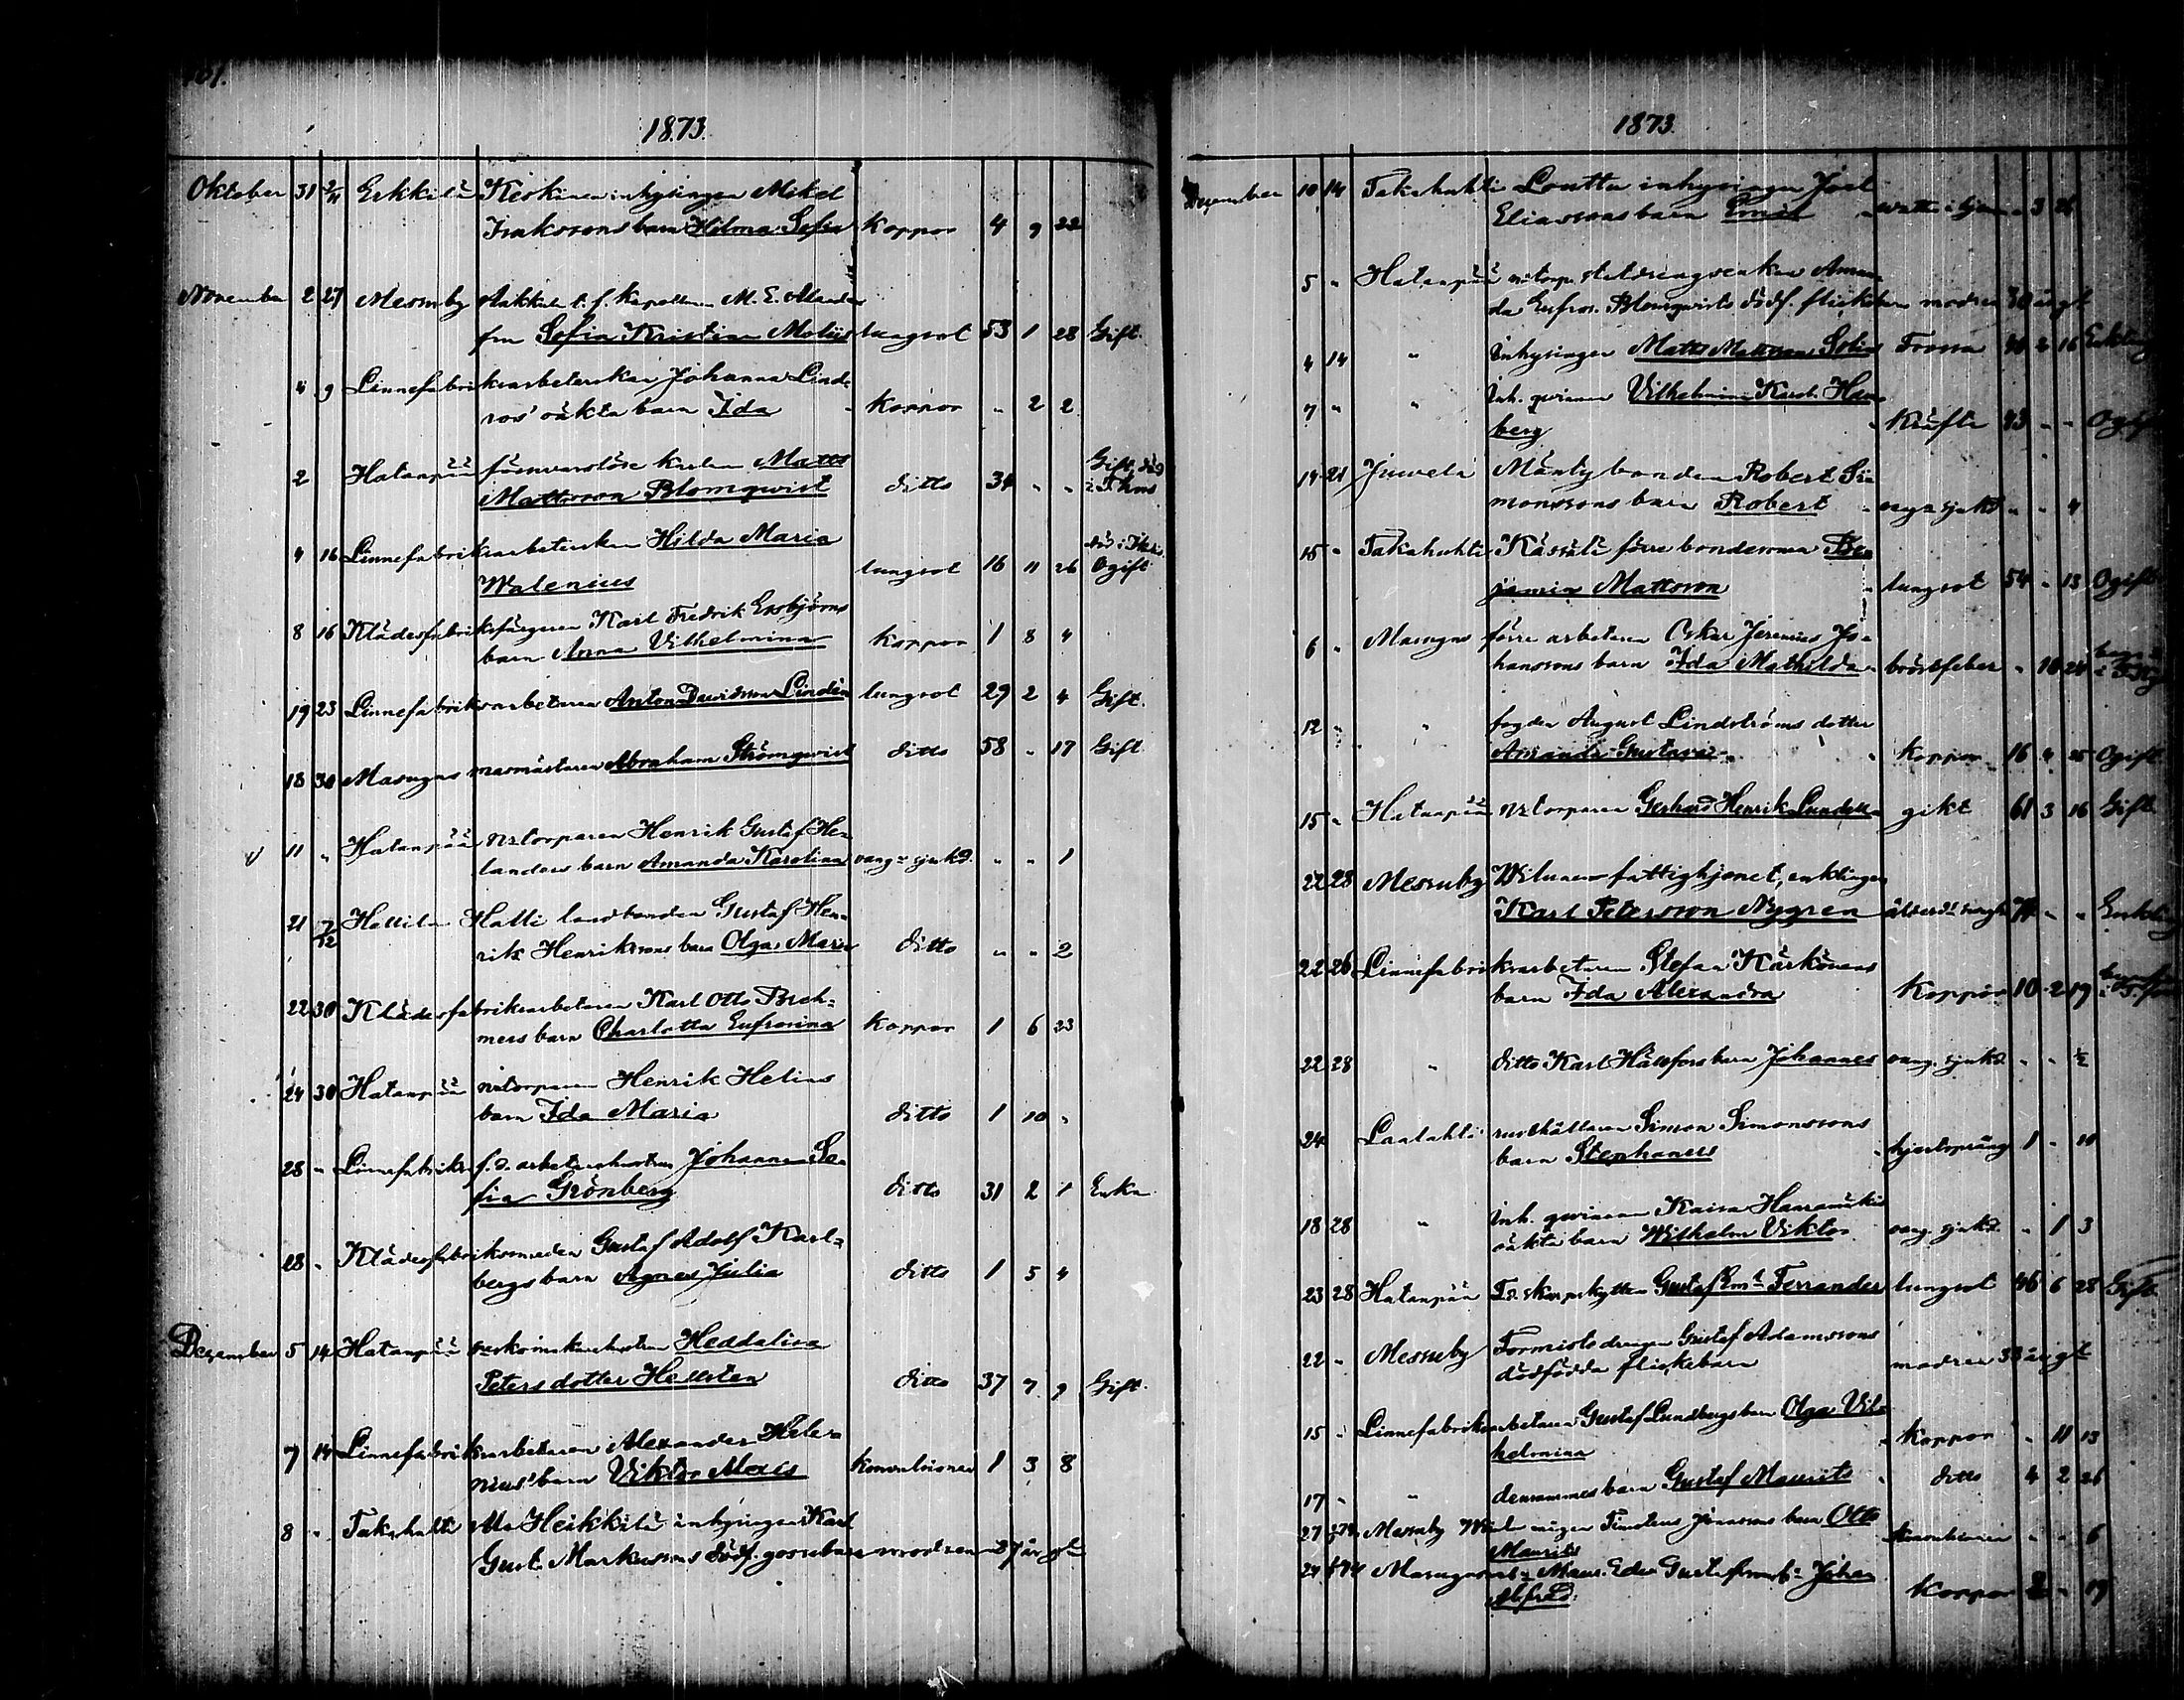 101.
1873.
Oktober 31 2/11 Erkkilä Keskinen inhysingen Mikel
Isaksons barn Hilma Sofia koppor 4 9 22
November 2 27 Messuby Aakkula t. f. kapellanen M. E.
fru Sofia Kristina lungsot 53 1 28 Gift.
4 9 Linnefabriksarbeterskan Johanna Lind-
ros' oäkta barn Ida koppor " 2 2
2 Hatanpää försvarslöse karlen Matts Gift, död
Mattsson Blomqvist ditto 34 " "
9 16 Linnefabriksarbeterskan Hilda Maria död i
Walenius lungsot 16 11 26 Ogift
8 16 Klädesfabriksfärgaren Karl Fredrik
barn Anna Vilhelmina koppor 1 8 4
19 23 Linnefabriksarbetaren Anton Davidsson Lindén lungsot 29 2 4 Gift.
18 30 Masugns masmästaren Abraham Strömqvist ditto 58 " 17 Gift
11 " Hatanpää nstorparen Henrik Gustaf He-
landers barn Amanda Karolina oang: sjukd. " " 1
21 7/12 Hallila Halli landbonden Gustaf Hen-
rik Henrikssons barn Olga Maria ditto " " 2
22 30 Klädesfabriksarbetaren Karl Otto Breh-
mers barn Charlotta Eufrosina koppor 1 6 23
24 30 Hatanpää nstorparen Henrik Helins
barn Ida Maria ditto 1 10 "
28 " Linnefabriks f. d. arbetarehustrun Johanna So-
fia Grönberg ditto 31 2 1 Enka
28 " Klädesfabrikssmeden Gustaf Adolf Karl-
bergs barn Agnes Julia ditto 1 5 4
Dezember 5 14 Hatanpää Heddalina
Petersdotter Hellsten ditto 37 7 9 Gift.
7 14 Linnefabriksarbetaren Alexander Hele-
nius' barn Viktor konvulsioner 1 3 8
8 " Takahuhti Ala Heikkilä inhysingen Karl
Gust. Markussons dödf. gossebarn modren 27 år gl
1873.
Dezember 10 14 Takahuhti Loutta inhysingen Joel
Eliassons barn Emil " 3 26
5 " Hatanpää nstorp. statdrengsenkan Aman-
da Eufros. Blomqvists dödf. flickebarn modren 30 år gl
4 14 " Inhysingen Matts Mattsson Solin Frossa 2 16 Enkling
7 " " Inh. qvinnan Vilhelmina Karol.
berg Kräfta " " Ogift
14 21 Juvela Mänty bonden Robert Si-
monssons barn Robert oang sjukd " " 4
15 " Takahuhti Kässälä förre bondesonen Ben-
jamin Mattsson lungsot 54 " 13 Ogift
6 " Masugns förre arbetaren Oskar Jeremias Jo-
hanssons barn Ida Mathilda bröstfeber " 10
12 " " fogden August Lindströms dotter
Amanda Gustava koppor 16 4 25 Ogift
15 " Hatanpää nstorparen Gerhard Henrik Lundell gikt 61 3 16 Gift
22 28 Messuby fattighjonet, enklingen
Karl Petersson Nygren " " Enkling
22 26 Linnefabriksarbetaren Stefan Kärkönens
barn Ida Alexandra koppor 10 2 19
22 28 " ditto Karl Hällfors barn Johannes oang. sjukd. " " 1/2
24 Laalahti rusthållaren Simon Simonssons
barn Stephanus hjertsprång 1 " 10
18 28 " Inh. qvinnan Kaisa Haramäkis
oäkta barn Wilhelm Viktor oang. sjukd. " 1 3
23 28 Hatanpää F. d. skarpskytten Gustaf Eml Ferrander lungsot 46 6 28 Gift.
22 " Messuby Tormiste drengen Gustaf Adamssons
dödfödda flickebarn modren 33 år gl
15 " Linnefabriksarbetaren Gustaf Lundbergs barn Olga Vil-
helmina koppor " 11 13
17 " " densammes barn Gustaf Maurits ditto 4 2 26
27 Messuby mågen Timoteus Jonassons barn Otto konvulsioner " " 6
Maurits
24 Masugns Gustafssons b: Johan
Alfred. koppor 2 " 19